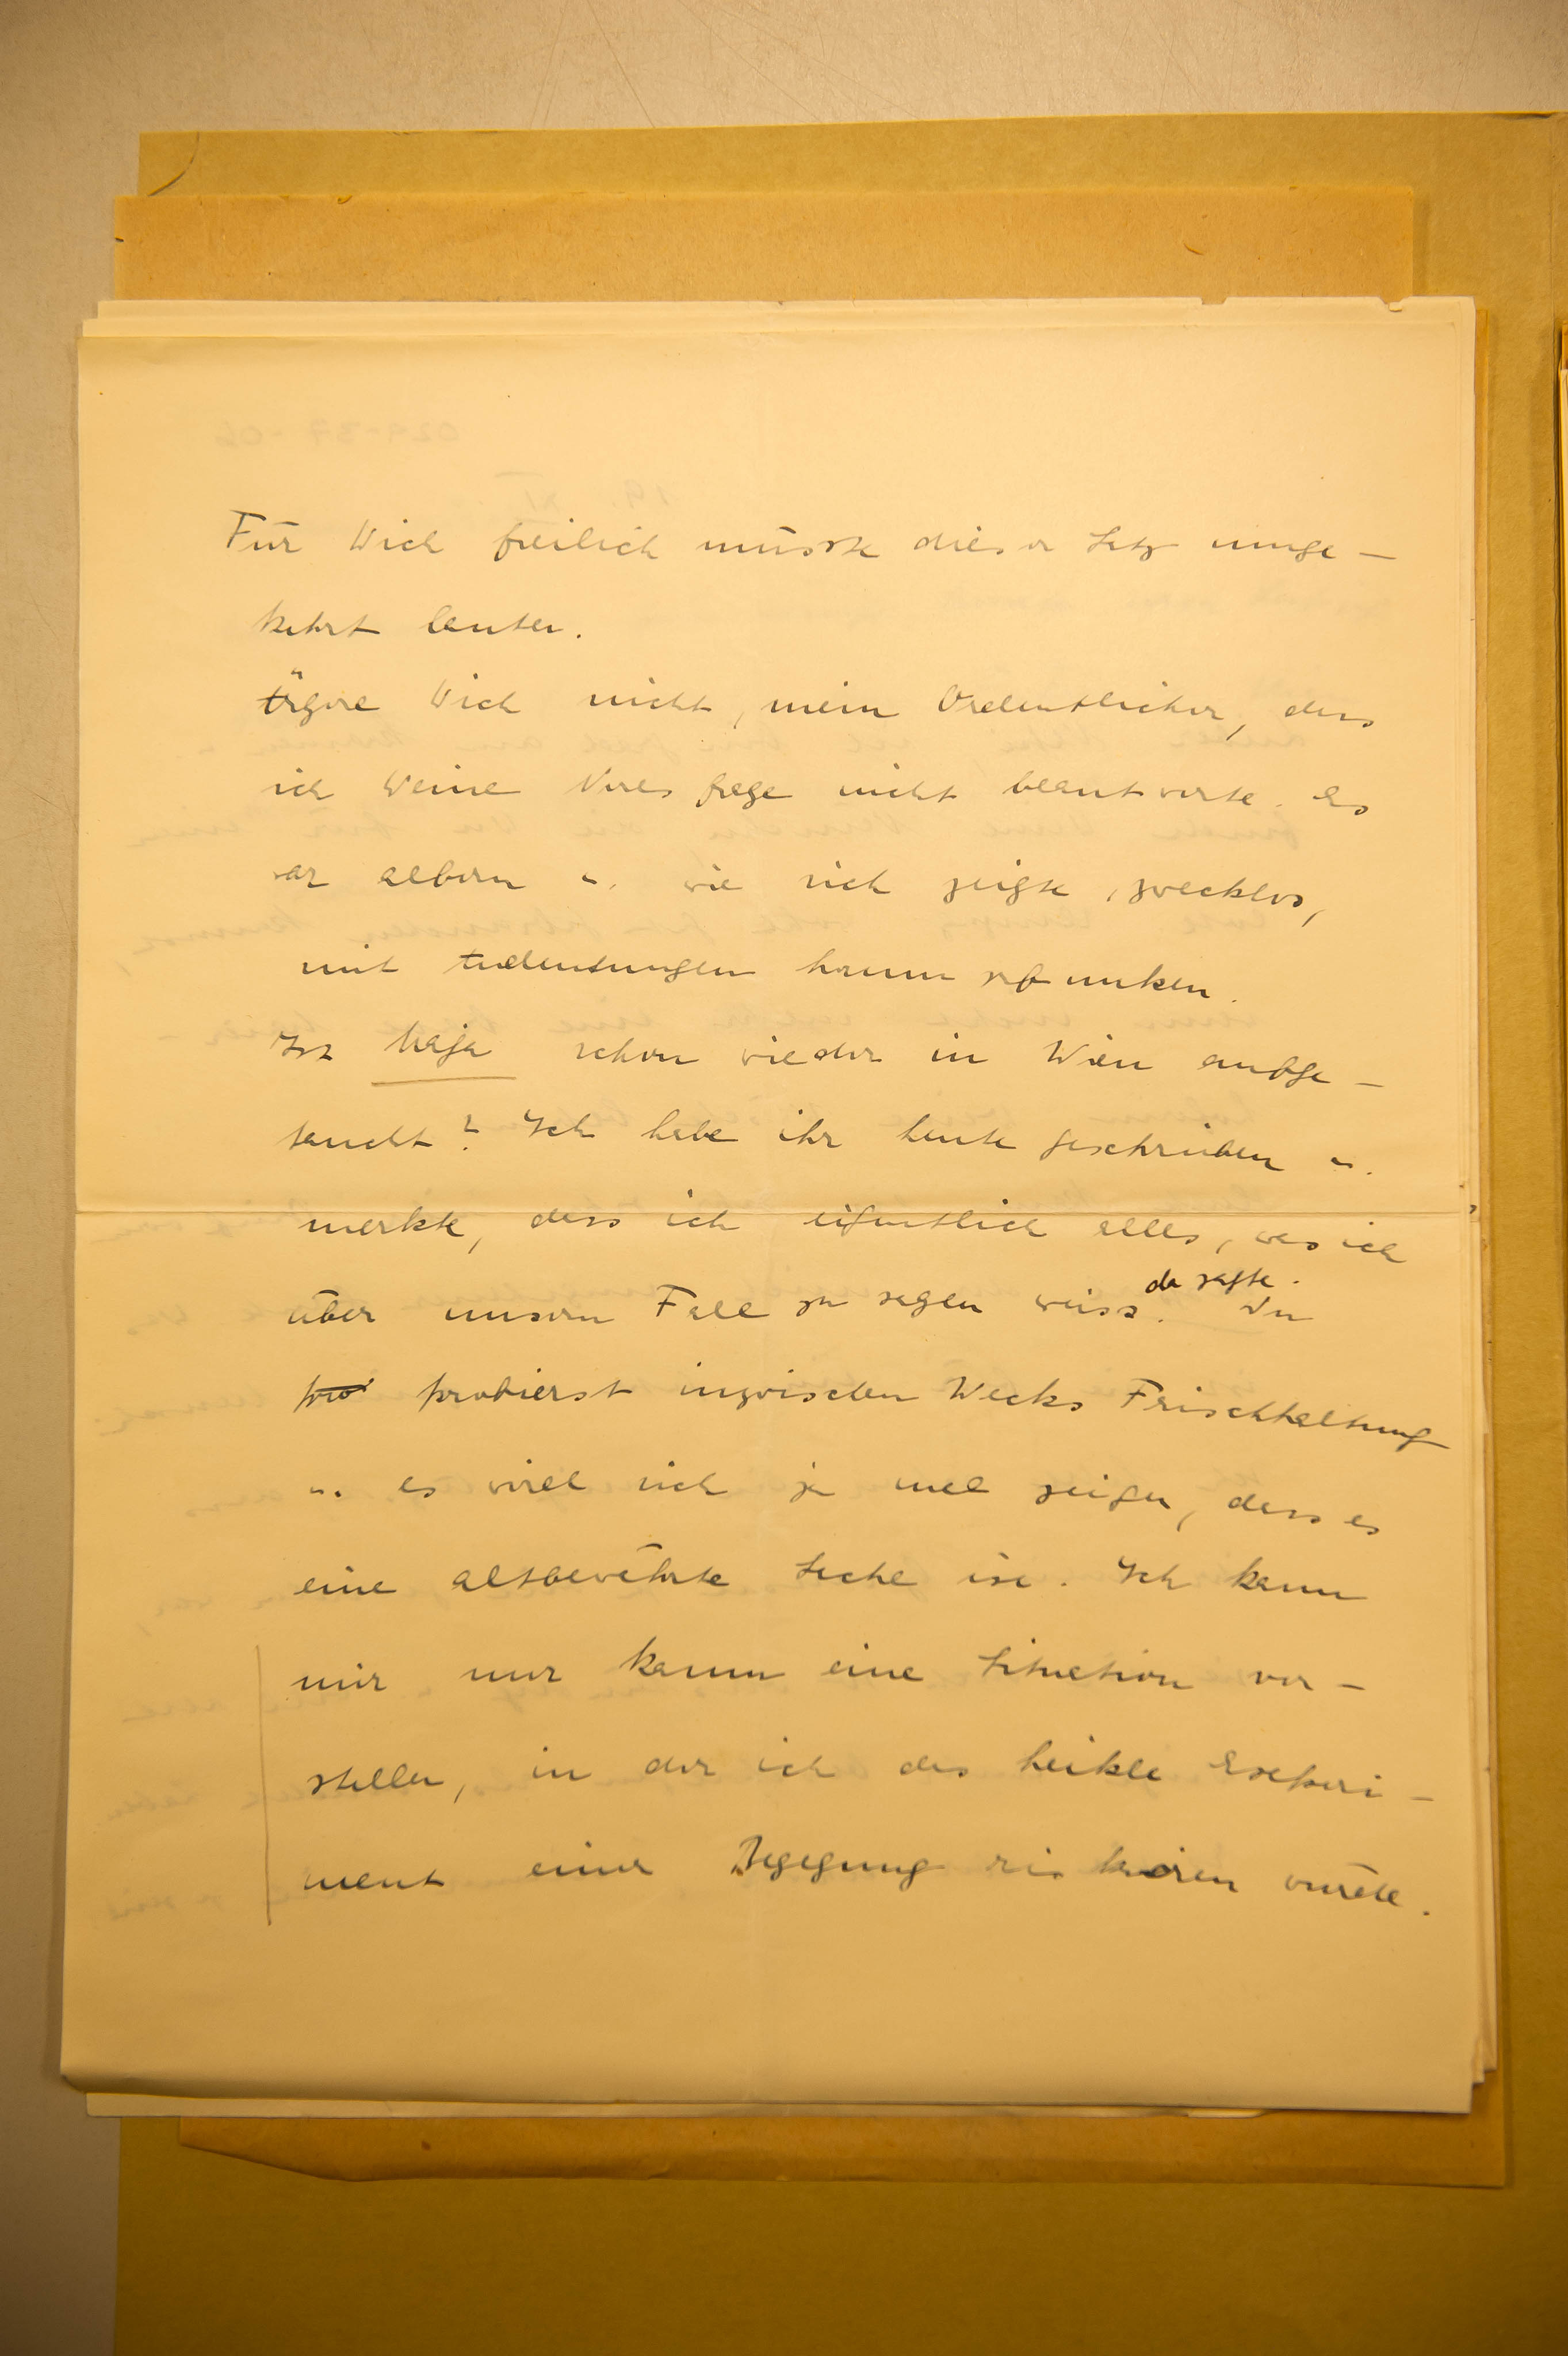 Für Dich freilich müsste dieser Satz umge-
kehrt lauten.
Ärgere Dich nicht, mein Ordentlicher, dass
ich Deine frage nicht beantworte. Es
war albern u. wie sich zeigte, zwecklos,
mit Andeutungen herum zu funken.
Ist Maja schon wieder in Wien aufge-
taucht? Ich habe ihr heute geschrieben u.
merkte, dass ich eigentlich alles, was ich
über unsern Fall zu sagen weiss da sagte. Du
probierst inzwischen Wecks Frischhaltung
u. es wird sich ja mal zeigen, dass es
eine altbewährte Sache ist. Ich kann
mir nur kaum eine Situation vor-
stellen, in der ich das heikle Experi-
ment einer Begegnung riskieren würde.